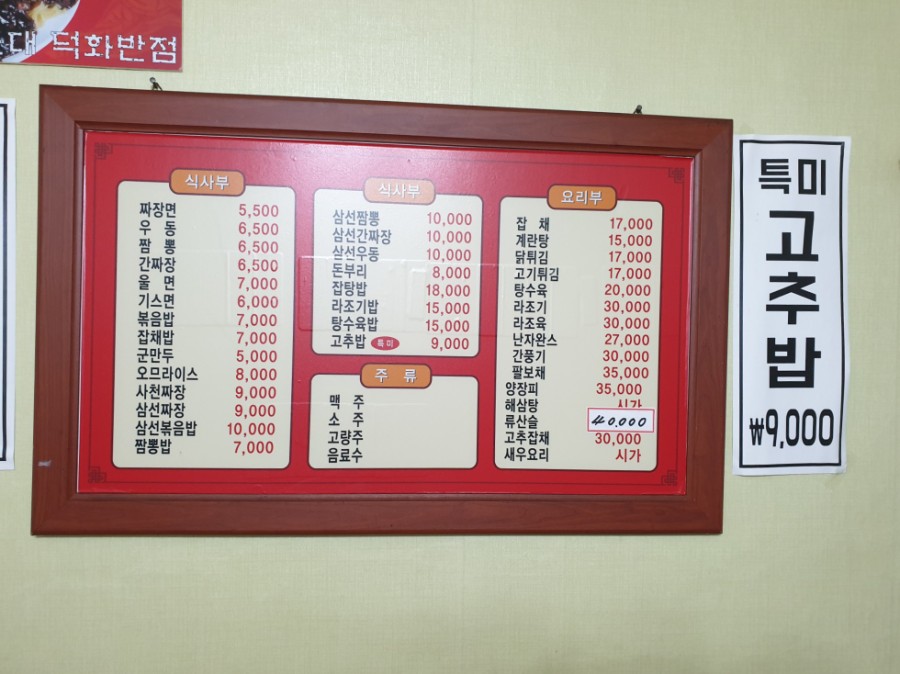 대 덕화반점
식사부
짜장면 5,500
우 동 6,500
짬 뽕 6,500
간짜장 6,500
울 면 7,000
기스면 6,000
볶음밥 7,000
잡채밥 7,000
군만두 5,000
오므라이스 8,000
사천짜장 9,000
삼선짜장 9,000
삼선볶음밥 10,000
짬뽕밥 7,000
식사부
삼선짬뽕 10,000
삼선간짜장 10,000
삼선우동 10,000
돈부리 8,000
잡탕밥 18,000
라조기밥 15,000
탕수육밥 15,000
고추밥 특미 9,000
주 류
맥 주
소 주
고량주
음료수
요리부
잡 채 17,000
계란탕 15,000
닭튀김 17,000
고기튀김 17,000
탕수육 20,000
라조기 30,000
라조육 30,000
난자완스 27,000
간풍기 30,000
팔보채 35,000
양장피 35,000
해삼탕 시가
류산슬 40.000
고추잡채 30,000
새우요리 시가
특미
고추밥
₩9,000